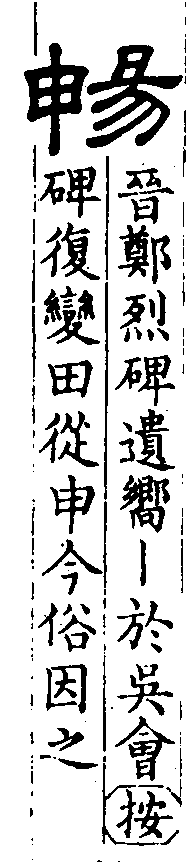 暢
晉鄭烈碑遺嚮丨於吳會按
碑復變田從申今俗因之